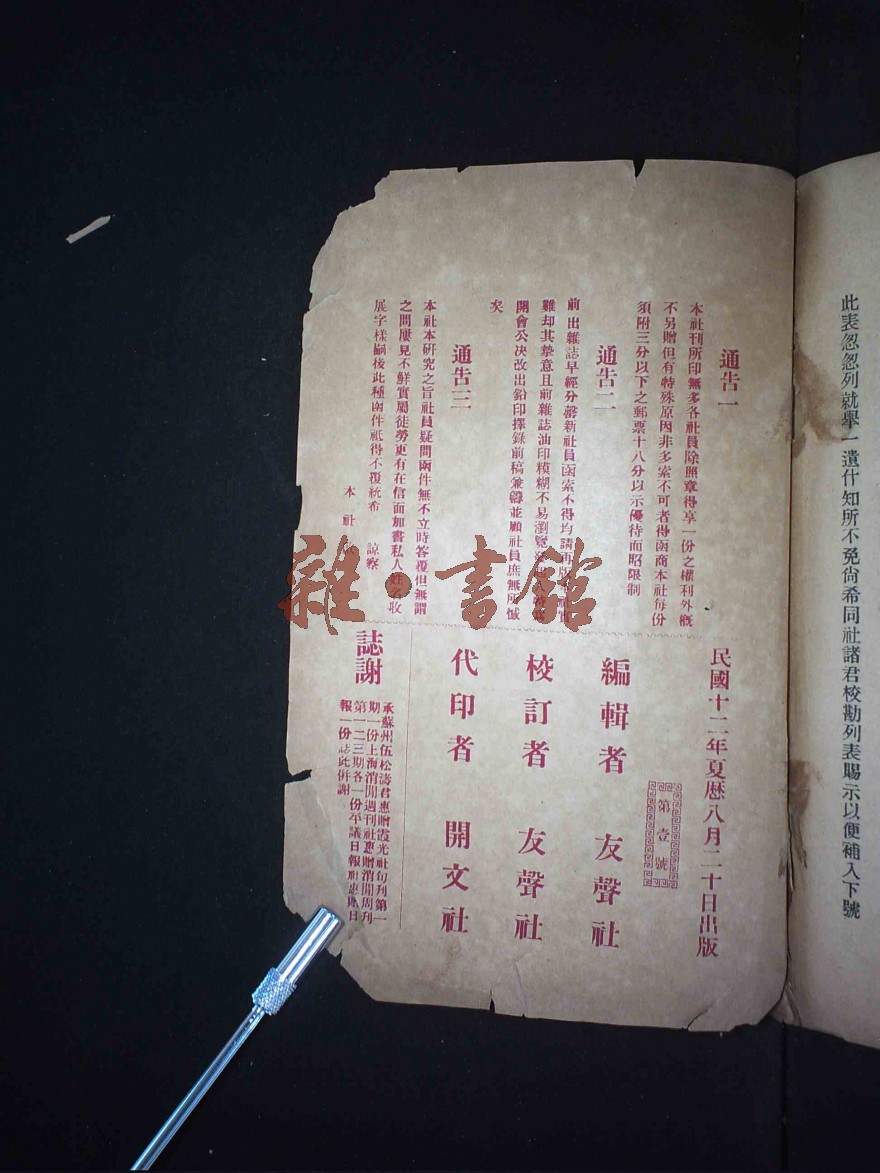 此表忽忽列就舉一遺什知所不免尙希同社諸君校勘列表賜示以便補入下號
通告一
本社刊所印無多各社員除照章得享一份之權利外概
不另贈但有特殊原因非多索不可者得函商本社每份
須附三分以下之郵票十八分以示優待而昭限制
通告二
前出雜誌早經分罄新社員函索不得均請再版
難却其摯意且前雜誌油印模糊不易瀏覽
開會公决改出鉛印擇錄前稿兼籌並顧社員庶無所憾
矣
通告三
本社本研究之旨社員疑問函件無不立時答覆但無謂
之問屢見不鮮實屬徒勞更有在信面加書私人姓名收
展字樣嗣後此種函件祇得不覆統希 諒察
本社
民國十二年夏曆八月二十日出版
第壹號
編輯者 友聲社
校訂者 友聲社
代印者 開文社
誌謝
承蘇州伍松濤君惠贈霞光社旬刊第一
期一份上海消閒週刊社惠贈消閒周刊
第一二三期各一份平議日報社惠贈日
報一份誌此併謝
雜·書館